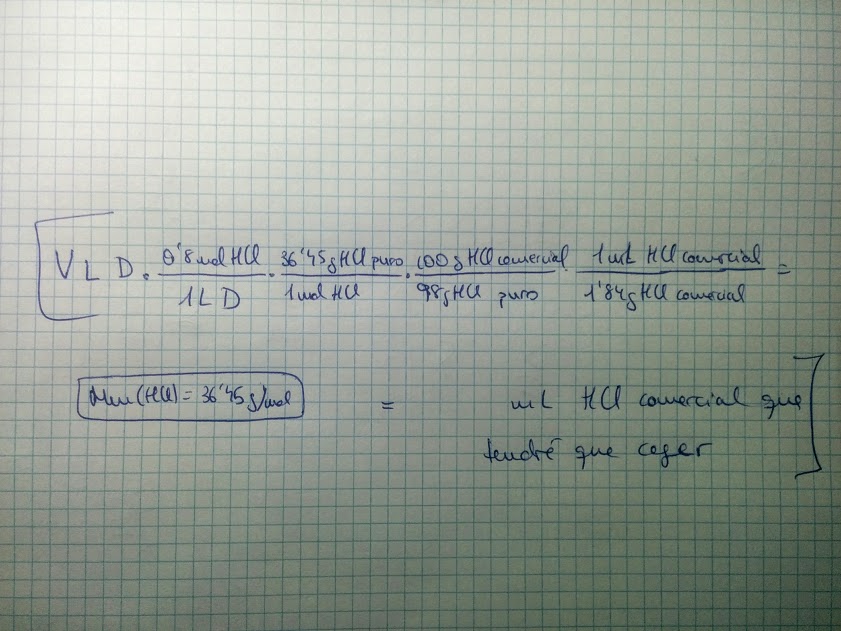 V L D · 0'8 mol HCl / 1 L D · 36'45 g HCl puro / 1 mol HCl · 100 g HCl comercial / 98 g HCl puro · 1 mL HCl comercial / 1'84 g HCl comercial =
Mm (HCl) = 36'45 g/mol = mL HCl comercial que
tendré que coger